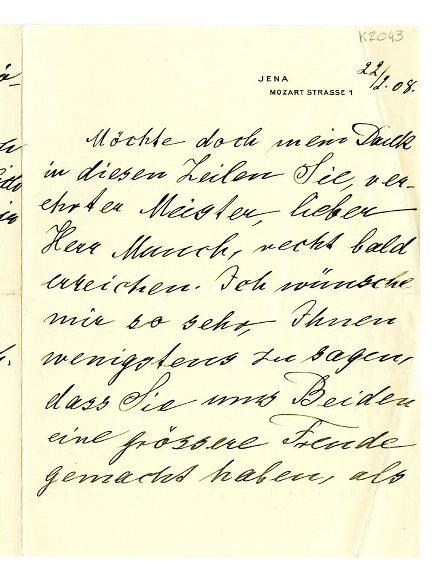 K.2043
JENA
MOZART STRASSE 1
22/2.08.
Möchte doch mein Dank
in diesen Zeilen Sie, ver-
ehrter Meister, lieber
Herr Munch, recht bald
erreichen. Ich wünsche
mir so sehr, Ihnen
wenigstens zu sagen,
dass Sie uns Beiden
eine grössere Freude
gemacht haben, als